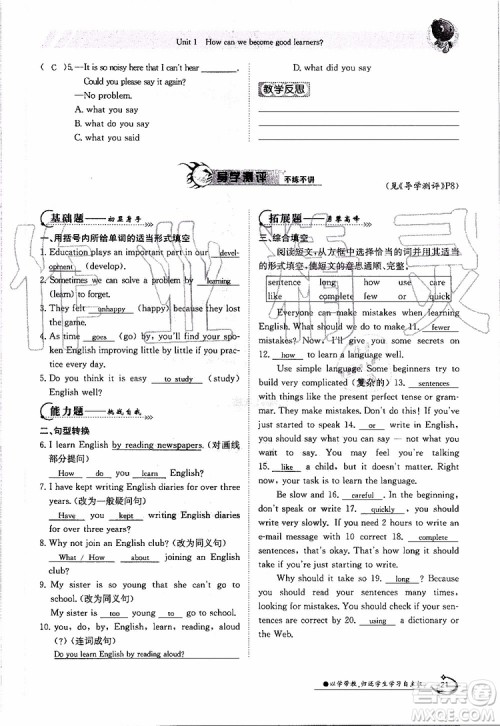 Unit 1 How can we become good learners?
( C )5.—It is so noisy here that I can't hear ______.
Could you please say it again?
—No problem.
A. what you say
B. what do you say
C. what you said
D. what did you say
教学反思
导学测评 不练不讲
(见《导学测评》P8)
基础题——初显身手
一、用括号内所给单词的适当形式填空
1. Education plays an important part in our devel-
opment (develop).
2. Sometimes we can solve a problem by learning
(learn) to forget.
3. They felt unhappy (happy) because they lost
the game.
4. As time goes (go) by, you will find your spo-
ken English improving little by little if you practice
every day.
5. Do you think it easy to study (study) English
well?
能力题——挑战自我
二、句型转换
6. I learn English by reading newspapers. (对画线
部分提问)
How do you learn English?
7. I have kept writing English diaries for over three
years. (改为一般疑问句)
Have you kept writing English diaries for
over three years?
8. Why not join an English club? (改为同义句)
What / How about joining an English
club?
9. My sister is so young that she can't go to
school. (改为同义句)
My sister is too young to go to school.
10. you, do, by, English, learn, reading, aloud
(?) (连词成句)
Do you learn English by reading aloud?
拓展题——勇攀高峰
三、综合填空
阅读短文，从方框中选择恰当的词并用其适当
的形式填空，使短文意思通顺、完整。
sentence long how use care
like complete few or quick
Everyone can make mistakes when learning
English. If you want to make 11. fewer
mistakes, I will give you some secrets on
12. how to learn a language well.
Use simple language. Some beginners try to
build very complicated (复杂的) 13. sentences
using the more complex tenses and grammar,
such as the present perfect tense or grammar.
Don't try to speak 14. or write that way. You
should say things in a very simple way. Start
15. like a child, not like a university student.
Be slow and 16. careful. In the beginning,
you don't have to write or say anything
17. quickly. If you need 2 hours to write an
e-mail message with 10 correct 18. complete
sentences, it's OK. Forget about how long it
takes.
Think about what you should say and how
you should say it. Even if it takes 19. long, it
is a useful activity. You should also learn how to
avoid making mistakes. You can check your sen-
tences by 20. using a dictionary or
the Web.
以学带教,归还学生学习自主权 21